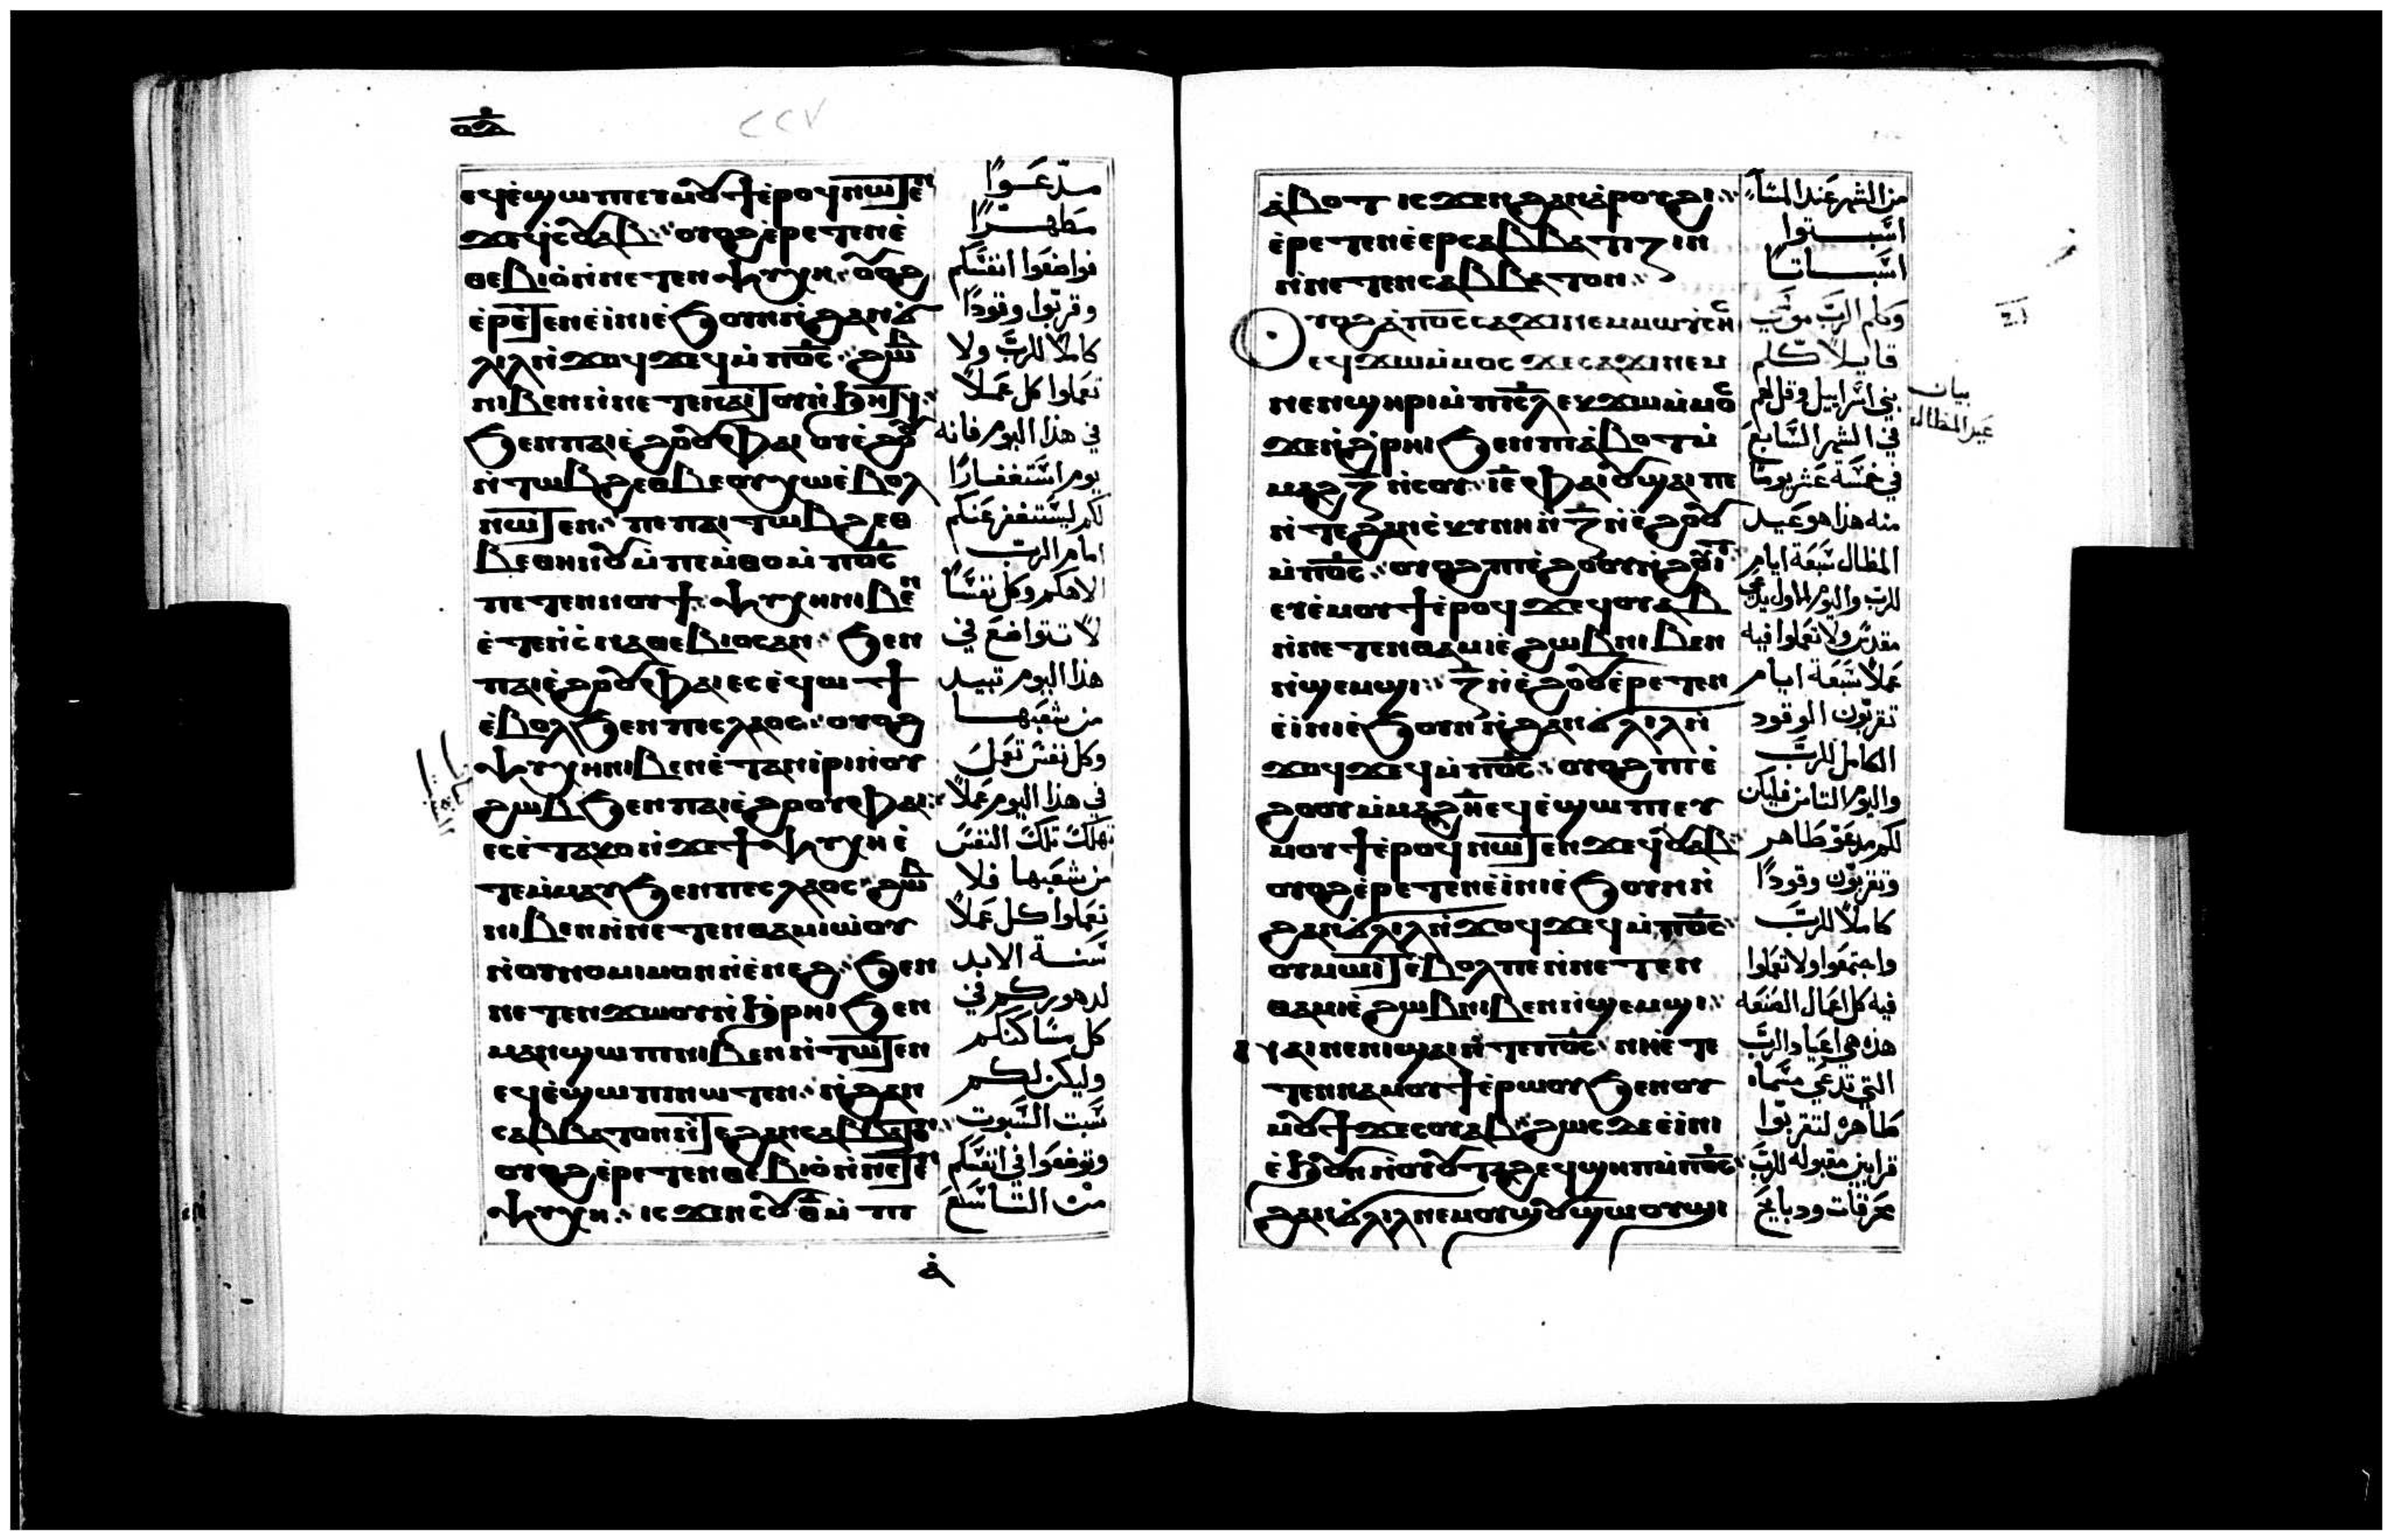 ⲥⲕⲍ
ⲉϥⲉ̀ϣⲱⲡⲉⲩⲙⲟⲩϯⲉ̀ⲣⲟϥⲛⲱⲧⲉⲛ
ϫⲉϥⲉⲟⲩⲁⲃ ⲟⲩⲟϩⲉ̀ⲣⲉⲧⲉⲛⲉ̀
ⲑⲉⲃⲓⲟ̀ⲛ̀ⲛⲉⲧⲉⲛⲯⲩⲭⲏ ⲟⲩⲟϩ
ⲉ̀ⲣⲉⲧⲉⲛⲉ̀ⲓⲛⲓⲉ̀ϧⲟⲩⲛⲛ̀ϩⲁⲛϭ̀
ⲗⲓⲗⲛ̀ϫⲟϥϫⲉϥⲙ̀ⲡⲟ̅ⲥ̅ ϩⲱⲃ
ⲛⲓⲃⲉⲛⲛ̀ⲛⲉⲧⲉⲛⲁⲓⲧⲟⲩⲛ̀ϧⲏⲧϥ
ϧⲉⲛⲡⲁⲓⲉ̀ϩⲟⲟⲩⲫⲁⲓ ⲟⲩⲉ̀ϩⲟⲟⲩ
ⲛ̀ⲧⲱⲃϩⲉⲑⲃⲉⲟⲩⲭⲱⲉ̀ⲃⲟⲗ
ⲛⲱⲧⲉⲛ ⲡⲉⲡⲁⲓⲧⲱⲃϩⲉⲑ
ⲃⲉⲑⲏⲛⲟⲩⲙ̀ⲡⲉⲙⲑⲟⲙ̀ⲡⲟ̅ⲥ̅
ⲡⲉⲧⲉⲛⲛⲟⲩϯ ⲯⲩⲭⲏⲛⲓⲃⲉⲛ
ⲉ̀ⲧⲉⲛ̀ⲥ̀ⲛⲁⲑⲉⲃⲓⲟⲥⲁⲛ ϧⲉⲛ
ⲡⲁⲓⲉ̀ϩⲟⲟⲩⲫⲁⲓⲉⲥⲉ̀ϥⲱϯ
ⲉ̀ⲃⲟⲗϧⲉⲛⲡⲉⲥⲗⲁⲟⲥ ⲟⲩⲟϩ
ⲯⲩⲭⲏⲛⲓⲃⲉⲛⲉ̀ⲧⲁⲛⲓⲣⲓⲛ̀ⲟⲩ
ϩⲱⲃϧⲉⲛⲡⲁⲓⲉ̀ϩⲟⲟⲩⲫⲁⲓ
ⲉⲥⲉ̀ⲧⲁⲕⲟⲛ̀ϫⲉϯⲯⲩⲭⲏⲉ̀
ⲧⲉⲙ̀ⲙⲁⲩϧⲉⲛⲡⲉⲥⲗⲁⲟⲥ ϩⲱⲃ
ⲛⲓⲃⲉⲛⲛ̀ⲛⲉⲧⲉⲛⲑⲁⲙⲓⲱ̀ⲟⲩ
ⲛ̀ⲟⲩⲛⲟⲙⲓⲙⲟⲛⲛ̀ⲉ̀ⲛⲉϩ ϧⲉⲛ
ⲛⲉⲧⲉⲛϫⲱⲟⲩⲛ̀ϧ̀ⲣⲏⲓϧⲉⲛ
ⲙⲁⲛ̀ϣⲱⲡⲓⲛⲓⲃⲉⲛⲛ̀ⲧⲱⲧⲉⲛ
ⲉϥⲉ̀ϣⲱⲡⲓⲛⲱⲧⲉⲛ ⲛ̀ϩⲁⲛ
ⲥⲁⲃⲃⲁⲧⲟⲛⲛ̀ⲧⲉϩⲁⲛⲥⲁⲃⲃⲁⲧⲟⲛ
ⲟⲩⲟϩⲉ̀ⲣⲉⲧⲉⲛⲑⲉⲃⲓⲟ̀ⲛ̀ⲛⲉⲧⲉⲛ
ⲯⲩⲭⲏ ⲓⲥϫⲉⲛⲥⲟⲩⲑ̅ⲙ̀ⲡⲓ
مدّعَوًا
مَطهرًا
تواضعَوا انفسَكم
وقربّوا وقودًا
كاملًا للربّ ولا
تعَملوا كل عَملًا
في هذا اليوم فانه
يوم استغفارًا
لكم ليسَتغفر عَنكم
امام الربّ
الاهكم وكل نفسًا
لا تتواضعَ في
هذا اليوم تبيد
من شعَبها
وكل نفسٌ تعَمل
في هذا اليوم عَملًا
تهلكَ تلكَ النفسَ
من شعَبها فلا
تعَملوا كل عَملًا
سَنة الابد
لدهوركم في
كل مسَاكنكم
وليكن لكم
سَبت السَبوت
وتوضعَوا في انفسَكم
من التاسَعَ
ⲁ̀ⲃⲟⲧ ⲓⲥϫⲉⲛϩⲁⲛⲁ̀ⲣⲟⲩϩⲓ
ⲉ̀ⲣⲉⲧⲉⲛⲉ̀ⲉⲣⲥⲁⲃⲃⲁⲧⲓⲍⲓⲛ
ⲛ̀ⲛⲉⲧⲉⲛⲥⲁⲃⲃⲁⲧⲟⲛ
ⲟⲩⲟϩⲁ̀ⲡⲟ̅ⲥ̅ⲥⲁϫⲓⲛⲉⲙⲙⲱⲩ̀ⲥⲏⲥ
ⲉϥϫⲱⲙ̀ⲙⲟⲥ ϫⲉⲥⲁϫⲓⲛⲉⲙ
ⲛⲉⲛϣⲏⲣⲓⲙ̀ⲡⲓⲥ̅ⲗ̅ⲉⲩϫⲱⲙ̀ⲙⲟⲥ
ϫⲉⲛ̀ϩ̀ⲣⲏⲓϧⲉⲛⲡⲓⲁ̀ⲃⲟⲧⲙ̀
ⲙⲁϩⲍ̅ ⲛ̀ⲥⲟⲩ ⲓ̅ⲉ̅ ⲫⲁⲓⲟⲩϣⲁⲓⲡⲉ
ⲛ̀ⲧⲉϩⲁⲛⲥ̀ⲕⲩⲛⲏⲛ̀ⲍ̅ⲛ̀ⲉ̀ϩⲟⲟⲩ
ⲙ̀ⲡⲟ̅ⲥ̅ ⲟⲩⲟϩⲡⲓⲉ̀ϩⲟⲟⲩⲛ̀ϩⲟⲩⲓⲧ
ⲉⲩⲉ̀ⲙⲟⲩϯⲉ̀ⲣⲟϥϫⲉϥⲟⲩⲁⲃ
ⲛ̀ⲛⲉⲧⲉⲛⲑⲁⲙⲓⲉ̀ϩⲱⲃⲛⲓⲃⲉⲛ
ⲛ̀ϣⲉⲙϣⲓ ⲍ̅ⲛ̀ⲉ̀ϩⲟⲟⲩⲉ̀ⲣⲉⲧⲉⲛ
ⲉ̀ⲓⲛⲓⲉ̀ϧⲟⲩⲛⲛ̀ϩⲁⲛϭ̀ⲗⲓⲗⲛ̀
ϫⲟϥϫⲉϥⲙ̀ⲡⲟ̅ⲥ̅ ⲟⲩⲟϩⲡⲓⲉ̀
ϩⲟⲟⲩⲙ̀ⲙⲁϩⲏ̅ⲉϥⲉ̀ϣⲱⲡⲉⲩ
ⲙⲟⲩϯⲉ̀ⲣⲟϥⲛⲱⲧⲉⲛϫⲉϥⲟⲩⲁⲃ
ⲟⲩⲟϩⲉ̀ⲣⲉⲧⲉⲛⲉ̀ⲓⲛⲓⲉ̀ϧⲟⲩⲛⲛ̀
ϩⲁⲛϭ̀ⲗⲓⲗⲛ̀ϫⲟϥϫⲉϥⲙ̀ⲡⲟ̅ⲥ̅
ⲟⲩⲙⲱⲓⲧⲉ̀ⲃⲟⲗⲡⲉⲛ̀ⲛⲉⲧⲉⲛ
ⲑⲁⲙⲓⲉ̀ϩⲱⲃⲛⲓⲃⲉⲛⲛ̀ϣⲉⲙϣⲓ
ⲛⲁⲓⲛⲉⲛⲓϣⲁⲓⲛ̀ⲧⲉⲡⲟ̅ⲥ̅ ⲛⲏⲉ̀ⲧⲉ
ⲧⲉⲛⲛⲁⲙⲟⲩϯⲉ̀ⲣⲱⲟⲩϧⲉⲛⲟⲩ
ⲙⲟⲩϯϫⲉⲥⲟⲩⲁⲃ ϩⲱⲥⲇⲉⲉ̀ⲓⲛⲓ
ⲉ̀ϧⲟⲩⲛⲛ̀ⲟⲩⲟⲩⲧⲁϩⲉϥϣⲏⲡⲙ̀ⲡⲟ̅ⲥ̅
ϩⲁⲛϭ̀ⲗⲓⲗⲛⲉⲙⲟⲩϣⲟⲩϣⲱⲟⲩϣⲓ
من الشهر عَند المسَآء
اسَبتوا
اسَباتًا
وكلم الربّ موسَي
قايلًا كلّم
بني اسَراييل وقل لهم
في الشهر السَابعَ
في خمسَة عَشر يومًا
منه هذا هو عَيد
المظال سَبعَة ايام
للربّ واليوم الاول يدعَي
مقدسٌ ولا تعَملوا فيه
عَملًا سَبعَة ايام
تقربّون الوقود
الكامل للربّ
واليوم الثامن فليكن
لكم مدعَوَ طاهر
وتقربّون وقودًا
كاملًا للربّ
واجتمعَوا ولا تعَملوا
فيه كل اعَمال المهَنه
هذه هي اعَياد الربّ
التي تدعَي مسَماه
طاهره لتقربّوا
قرابين مقبوله للربّ
محَرقات ودبايحَ
بيان
عَيد المظال